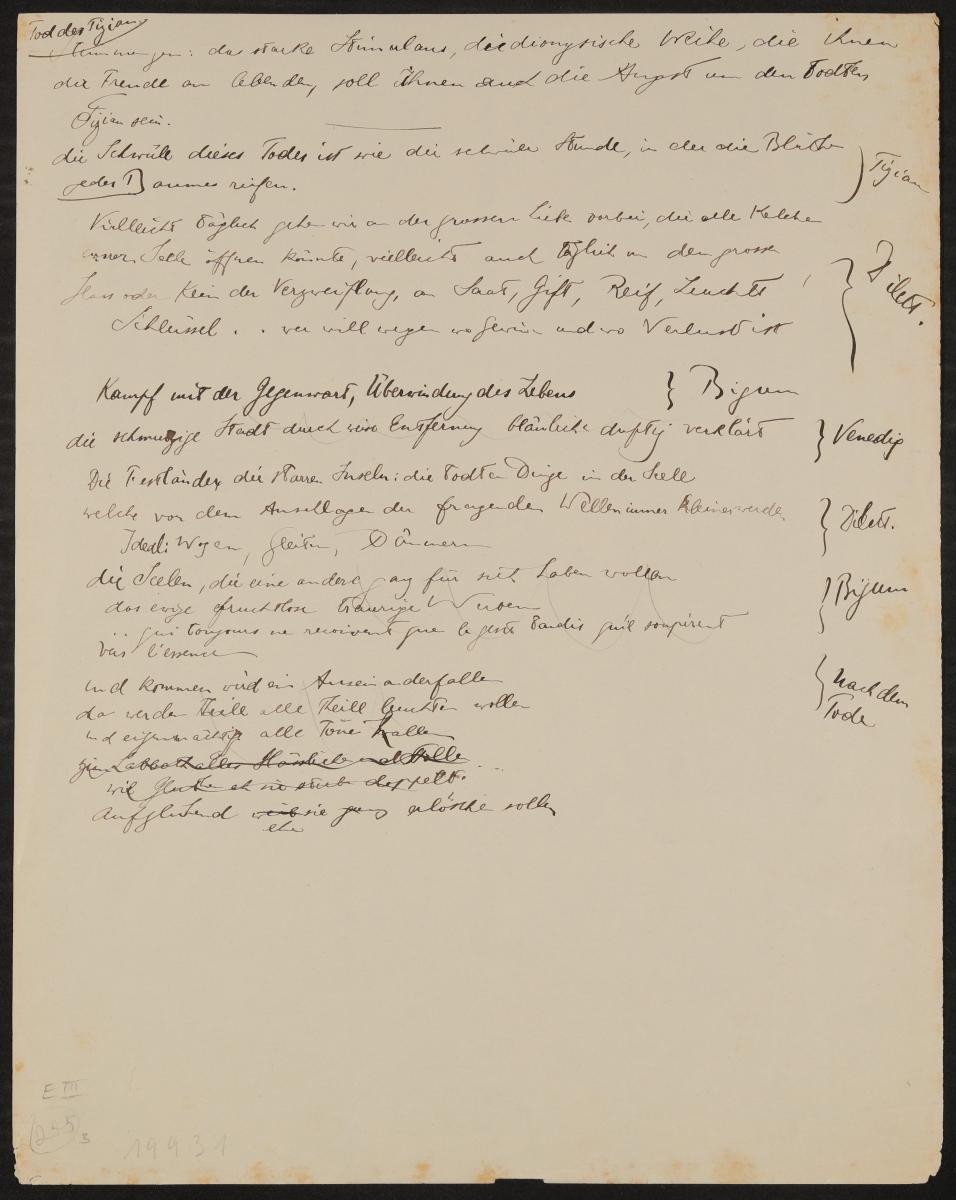 Tod des Tizian
Stimmungen: das starke Stimulans, die dionysische Weihe, die ihnen
die Freude am lebenden, soll ihnen auch die Angst um den todten
Tizian sein.
die Schwüle dieses Todes ist wie die schwüle Stunde, in der die Blüthen
jedes Baumes reifen.
Tizian
Vielleicht täglich gehen wir an der grossen Liebe vorbei, die alle Kelche
unserer Seele öffnen könnte, vielleicht auch täglich an dem grossen
Hass oder Keim der Verzweiflung, an Saat, Gift, Reif, Leuchte
Schlüssel . . wer will wägen wo Gewinn und wo Verlust ist
Dilett.
Kampf mit der Gegenwart, Überwindung des Lebens
die schmutzige Stadt durch die Entfernung bläulich duftig verklärt
Venedig
Die Festländer die starren Inseln: die todten Dinge in der Seele
welche vor dem Anschlagen der fragenden Wellen immer kleiner werden
Ideal: Wogen, Gleiten, Dämmern
Dilett.
die Seelen, die eine andere ganz für sich haben wollen
das ewige fruchtlose traurige Werben
.. qui toujours ne reçoivent que le geste tandis qu'elles soupirent
vers l'essence
und kommen wird ein Auseinanderfallen
da werden Theile alle Theile leuchten wollen
und eigenmächtig alle Töne hallen
nach dem
Tode
aufglühend wie sie ganz erlöschen sollen
ehe
E III
245
3
19931